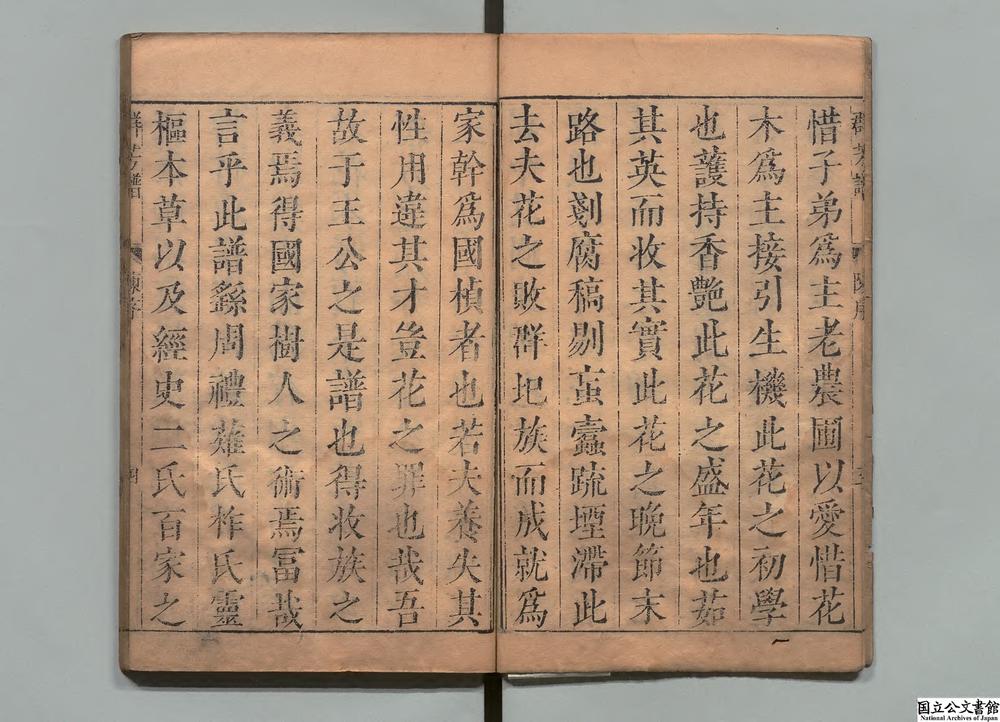 惜子弟爲主老農圃以愛惜花
木爲主接引生機此花之初學
也護持香艷此花之盛年也茹
其英而收其實此花之晚節末
路也剗腐稿剔蚩蠹疏堙滯此
去夫花之敗群圯族而成就爲
家幹爲國楨者也若夫養失其
性用違其才豈花之罪也哉吾
故于王公之是譜也得收族之
義焉得國家樹人之術焉富哉
言乎此譜繇周禮薙氏柞氏靈
樞本草以及經史二氏百家之
群芳譜
陳序
三
群芳譜
陳序
四
国立公文書館
National Archives of Japan